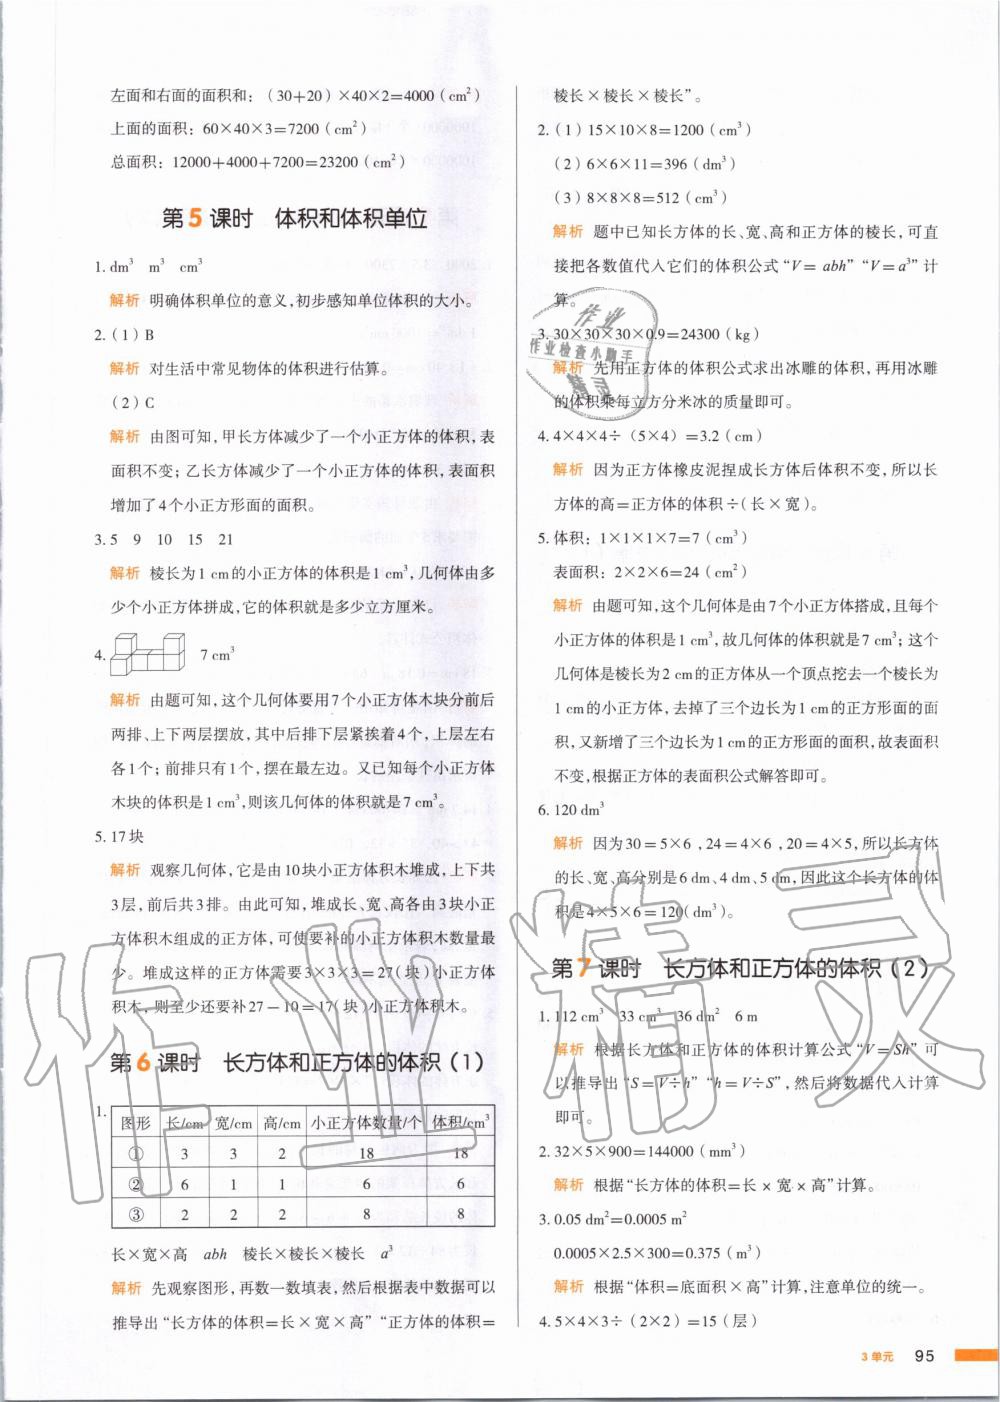 左面和右面的面积和:(30+20)×40×2=4000(cm²)
上面的面积:60×40×3=7200(cm²)
总面积:12000+4000+7200=23200(cm²)
第5课时 体积和体积单位
1. dm³ m³ cm³
解析 明确体积单位的意义,初步感知单位体积的大小。
2.(1)B
解析 对生活中常见物体的体积进行估算。
(2)C
解析 由图可知,甲长方体减少了一个小正方体的体积,表
面积不变;乙长方体减少了一个小正方体的体积,表面积
增加了4个小正方形面的面积。
3. 5 9 10 15 21
解析 棱长为1 cm的小正方体的体积是1 cm³,几何体由多
少个小正方体拼成,它的体积就是多少立方厘米。
4. 7 cm³
解析 由题可知,这个几何体要用7个小正方体木块分前后
两排、上下两层摆放,其中后排下层紧挨着4个,上层左右
各1个;前排只有1个,摆在最左边。又已知每个小正方体
木块的体积是1 cm³,则该几何体的体积就是7 cm³。
5. 17块
解析 观察几何体,它是由10块小正方体积木堆成,上下共
3层,前后共3排。由此可知,堆成长、宽、高各由3块小正
方体积木组成的正方体,可使要补的小正方体积木数量最
少。堆成这样的正方体需要3×3×3=27(块)小正方体
积木,则至少还要补27-10=17(块)小正方体积木。
第6课时 长方体和正方体的体积(1)
1.
图形 长/cm 宽/cm 高/cm 小正方体数量/个 体积/cm³
① 3 3 2 18 18
② 6 1 1 6 6
③ 2 2 2 8 8
长×宽×高 abh 棱长×棱长×棱长 a³
解析 先观察图形,再数一数填表,然后根据表中数据可以
推导出“长方体的体积=长×宽×高”“正方体的体积=
棱长×棱长×棱长”。
2.(1)15×10×8=1200(cm³)
(2)6×6×11=396(dm³)
(3)8×8×8=512(cm³)
解析 题中已知长方体的长、宽、高和正方体的棱长,可直
接把各数值代入它们的体积公式“V=abh”“V=a³”计
算。
3. 30×30×30×0.9=24300(kg)
解析 先用正方体的体积公式求出冰雕的体积,再用冰雕
的体积乘每立方分米冰的质量即可。
4. 4×4×4÷(5×4)=3.2(cm)
解析 因为正方体橡皮泥捏成长方体后体积不变,所以长
方体的高=正方体的体积÷(长×宽)。
5. 体积:1×1×1×7=7(cm³)
表面积:2×2×6=24(cm²)
解析 由题可知,这个几何体是由7个小正方体搭成,且每个
小正方体的体积是1 cm³,故几何体的体积就是7 cm³;这个
几何体是棱长为2 cm的正方体从一个顶点挖去一个棱长为
1 cm的小正方体,去掉了三个边长为1 cm的正方形面的面
积,又新增了三个边长为1 cm的正方形面的面积,故表面积
不变,根据正方体的表面积公式解答即可。
6. 120 dm³
解析 因为30=5×6,24=4×6,20=4×5,所以长方体
的长、宽、高分别是6 dm、4 dm、5 dm,因此这个长方体的体
积是4×5×6=120(dm³)。
第7课时 长方体和正方体的体积(2)
1. 112 cm³ 33 cm³ 36 dm² 6 m
解析 根据长方体和正方体的体积计算公式“V=Sh”可
以推导出“S=V÷h”“h=V÷S”,然后将数据代入计算
即可。
2. 32×5×900=144000(mm³)
解析 根据“长方体的体积=长×宽×高”计算。
3. 0.05 dm²=0.0005 m²
0.0005×2.5×300=0.375(m³)
解析 根据“体积=底面积×高”计算,注意单位的统一。
4. 5×4×3÷(2×2)=15(层)
3单元 95
作业
作业检查小助手
精灵
作业精灵